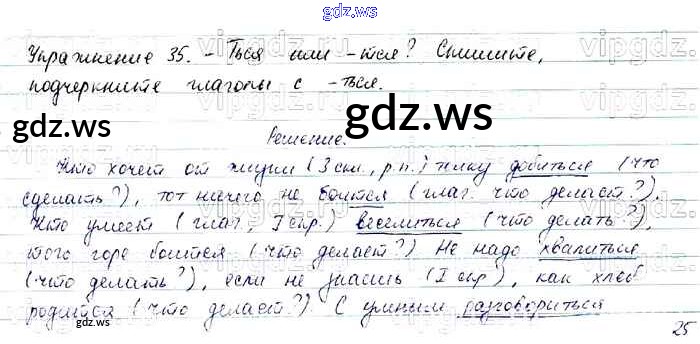 gdz.ws
Упражнение 35. -Ться или -тся? Спишите,
подчеркните глаголы с -ться.
gdz.ws gdz.ws
Решение.
Кто хочет от жизни (3 скл., р.п.) толку добиться (что
сделать?), тот ничего не боится (глаг. что делает?).
Кто умеет (глаг., I спр.) веселиться (что делать?),
того горе боится (что делает?) Не надо хвалиться
(что делать?), если не знаешь (I спр), как хлеб
родится (что делает?). С умным разговориться
gdz.ws
gdz.ws
25